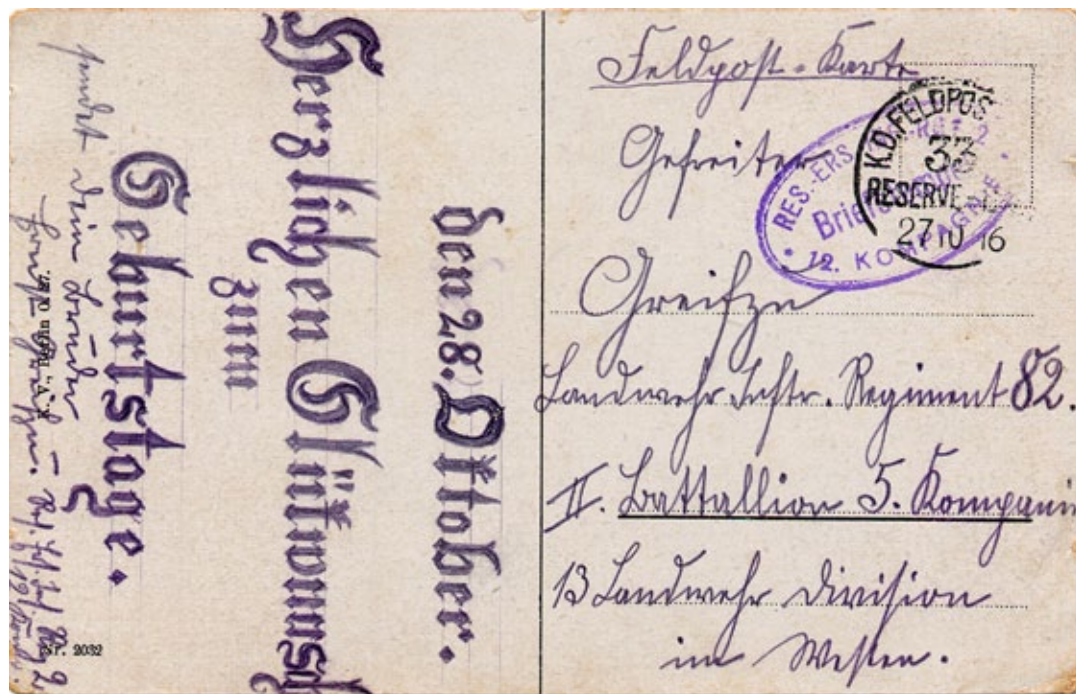 den 28. Oktober.
Herzlichen Glückwunsch
zum
Geburtstage.
sendet Dein Bruder
Nr. 2032
Feldpost-Karte
Gefreiter
Landwehr Inftr. Regiment 82.
II. Battallion 5. Kompanie
13 Landwehr Division
im Westen.
K.D. FELDPOS
33
RESERVE
27 10 16
RES.-ERS.
12. KOMPAGNIE